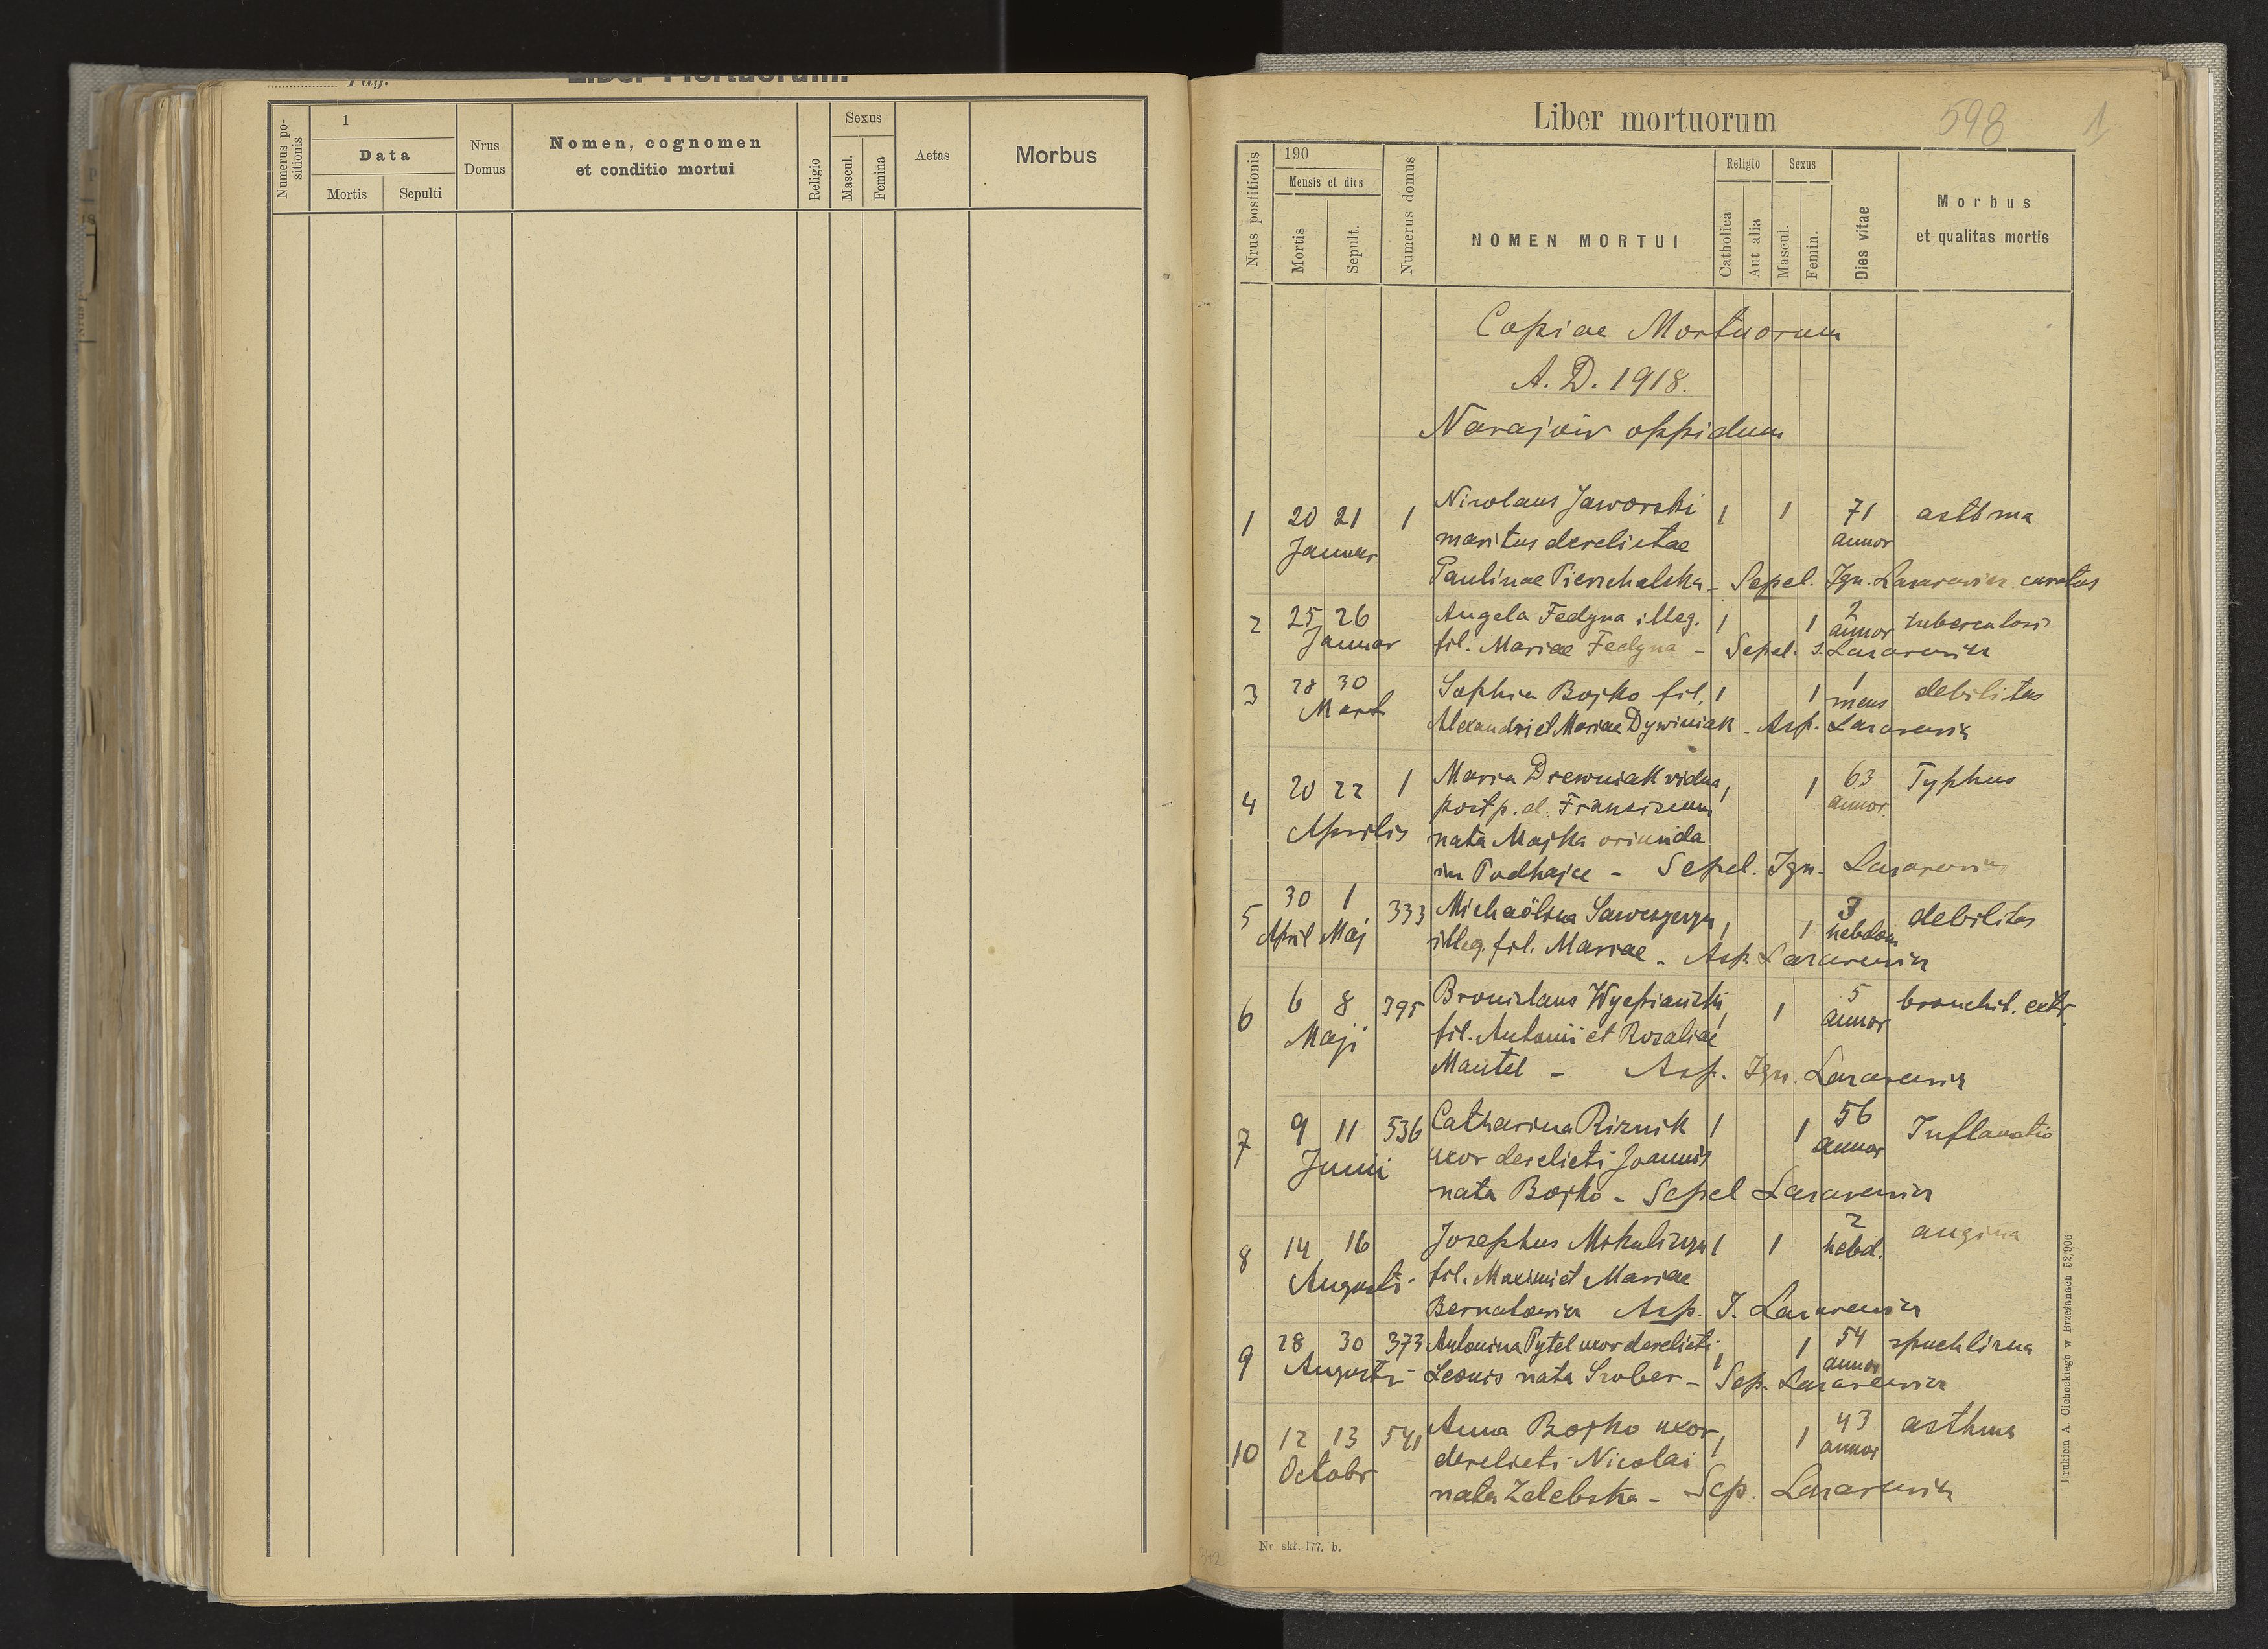 Pag.
Liber Mortuorum.
Numerus po-
sitionis
1
Data
Mortis
Sepulti
Nrus
Domus
Nomen, cognomen
et conditio mortui
Religio
Sexus
Mascul.
Femina
Aetas
Morbus
Liber mortuorum
598
1
Nrus postitionis
190
Mensis et dies
Mortis
Sepult.
Numerus domus
NOMEN MORTUI
Religio
Catholica
Aut alia
Sexus
Mascul.
Femin.
Dies vitae
Morbus
et qualitas mortis
Copiae Mortuorum
A. D. 1918.
Narajów oppidum
1 20 21 1 Nicolaus Jaworski 1 1 71 asthma
Januar maritus derelictae annor
Paulinae - Sepel. Ign. Lazarewicz curatus
2 25 26 Angela Fedyna illeg. 1 1 2 tuberculosis
Januar fil. Mariae Fedyna - Sepel. I. Lazarewicz annor
3 28 30 Sophia Bojko fil. 1 1 1 debilitas
Mart Alexandri et Mariae Dywiniak - Asp. Lazarewicz mens
4 20 22 1 Maria Drewniak vidua 1 1 63 Typhus
Aprilis post p. d. Franciscum annor.
nata Majka oriunda
in Podhajce - Sepel. Ign. Lazarewicz
5 30 1 333 Michaëlina 1 1 3 debilitas
April Maj illeg. fil. Mariae - Asp. Lazarewicz hebdom
6 6 8 395 Bronislaus Wyspiański 1 1 5 bronchit.
Maji fil. Antonii et Rosaliae annor
Mantel - Asp. Ign. Lazarewicz
7 9 11 536 Catharina Riznik 1 1 56 Inflamatio
Junii uxor derelicti Joannis annor
nata Bojko - Sepel Lazarewicz
8 14 16 Josephus 1 1 2 angina
Augusti fil. Maximi et Mariae hebd.
Bernatowicz Asp. I. Lazarewicz
9 28 30 373 Antonina Pytel uxor derelicti 1 1 54 spuchlizna
Augusti Leonis nata Szober - Sep. Lazarewicz annor
10 12 13 541 Anna Bojko uxor 1 1 43 asthma
Octobr derelicti Nicolai annor
nata Zelebska - Sep. Lazarewicz
Nr. skł. 177, b.
Drukiem A. Cichockiego w Brzeżanach 52/906
342